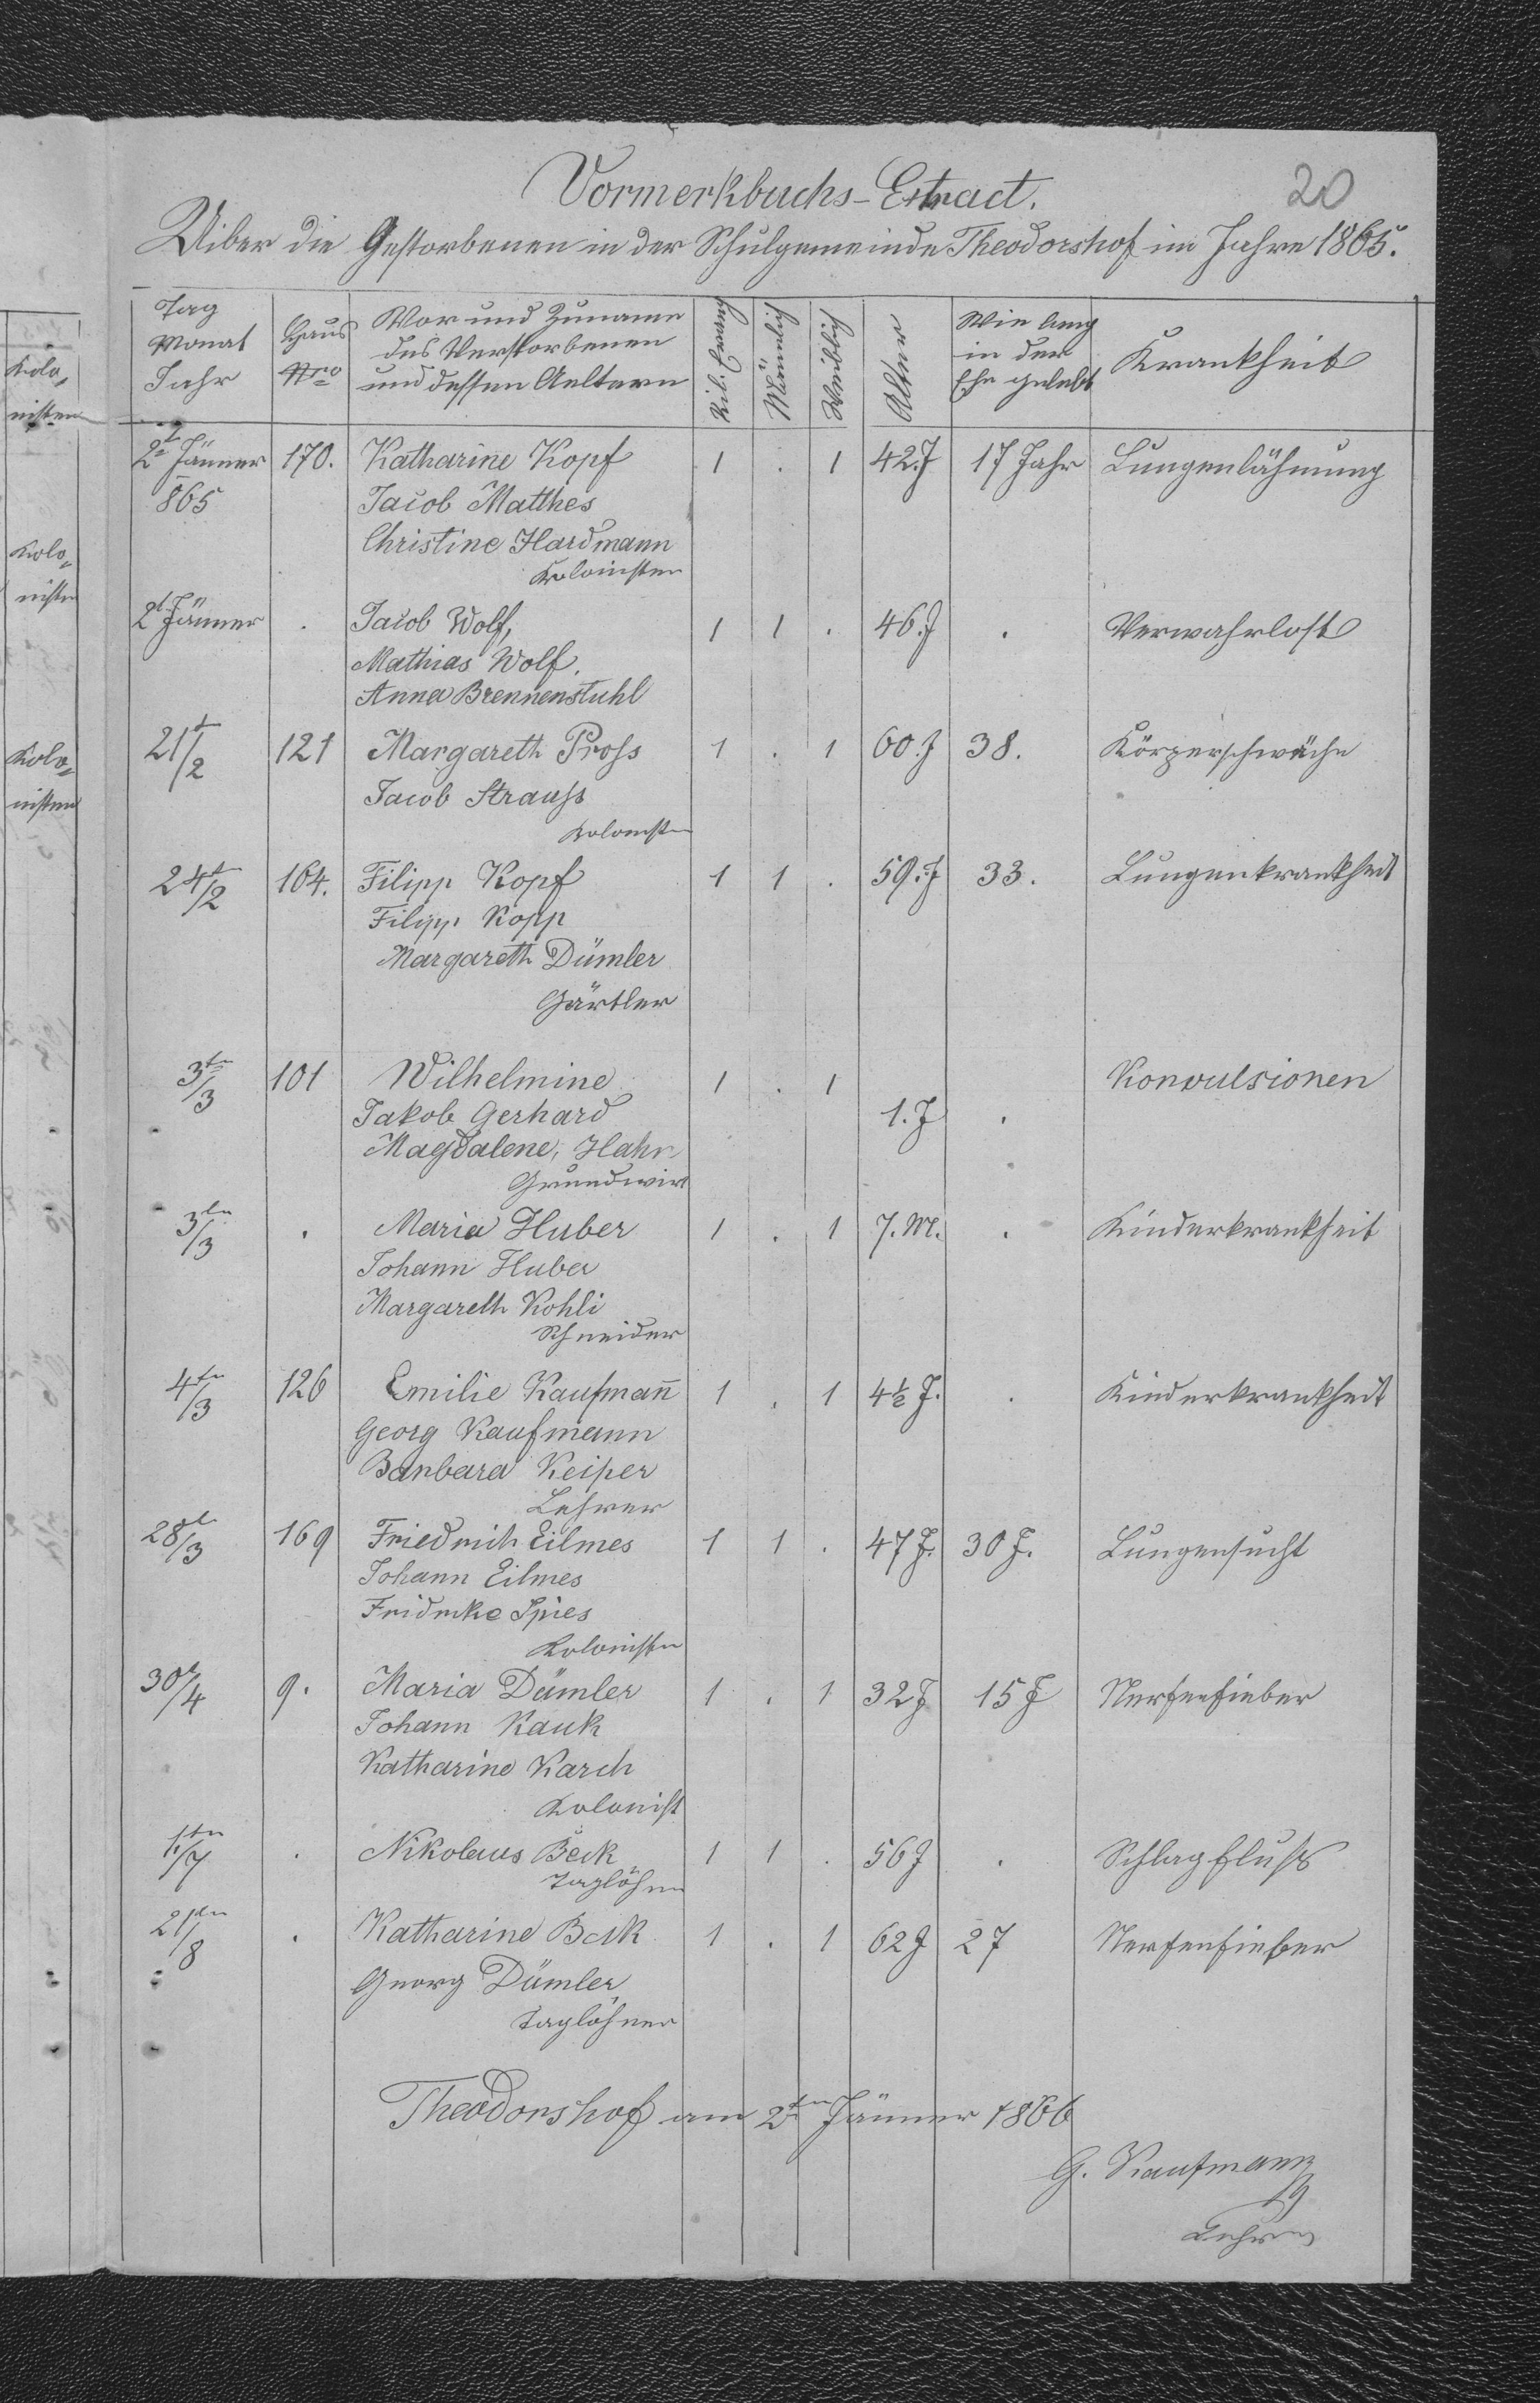 20
Vormerkbuchs-Extract.
Uiber die Gestorbenen in der Schulgemeinde Theodorshof im Jahre 1865.
Tag Monat Jahr | Haus Nro | Vor und Zuname des Verstorbenen und dessen Aeltern | Rel. Evang | Männlich | Weiblich | Alter | Wie lang in der Ehe gelebt | Krankheit
2t Jänner 170. Katharine Kopf 1 . 1 42.J 17 Jahr Lungenlähmung
865 Jacob Matthes
Christine Hardmann
Kolonisten
2t Jänner . Jacob Wolf, 1 1 . 46.J . Verwahrlost
Mathias Wolf.
Anna Brennenstuhl
21t/2 121 Margareth Pross 1 . 1 60.J 38. Körperschwäche
Jacob Strauss
Kolonisten
24t/2 164. Filipp Kopf 1 1 . 59.J 33. Lungenkrankheit
Filipp Kopp
Margareth Dümler
Gärtler
3tn/3 101 Wilhelmine 1 . 1 Konvulsionen
Jakob Gerhard 1.J .
Magdalene, Hahn
Grundwirt
3tn/3 . Maria Huber 1 . 1 7.M. . Kinderkrankheit
Johann Huber
Margareth Kohli
Schneider
4tn/3 126 Emilie Kaufmañ 1 . 1 4½ J. . Kinderkrankheit
Georg Kaufmann
Banbara Keiper
Lehrer
28t/3 169 Friedrich Eilmes 1 1 . 47 J. 30 J. Lungensucht
Johann Eilmes
Fridrike Spies
Kolonisten
30t/4 9. Maria Dümler 1 . 1 32 J 15 J Nerfenfieber
Johann Kauk
Katharine Karch
Kolonist
1tn/7 . Nikolaus Beck 1 1 . 56 J . Schlagfluss
Taglöhner
21tn/8 . Katharine Beck 1 . 1 62 J 27 Nerfenfieber
Georg Dümler
Taglöhner
Theodorshof am 2tn Jänner 1866
G. Kaufmann
Lehrer
Kolo=
nisten
Kolo=
nisten
Kolo=
nisten